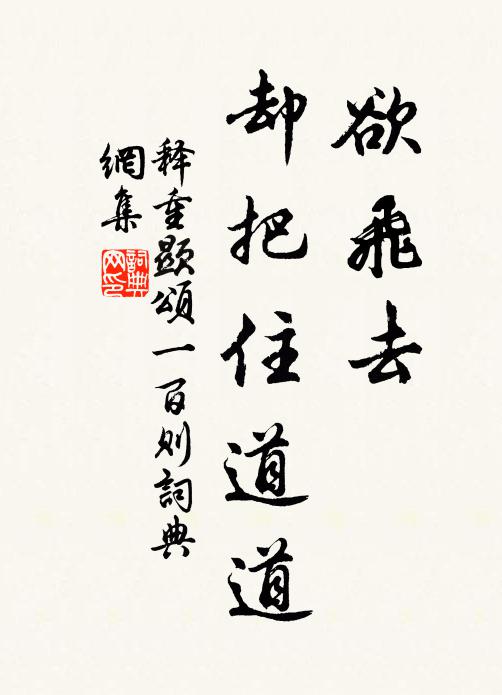 欲飛去
却把住道道
释重顯頌一百则詞典
網集
詞典网印